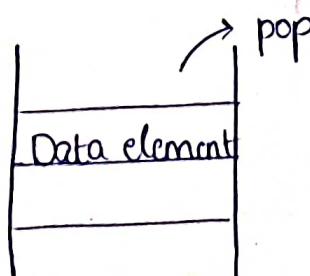 pop
Data element